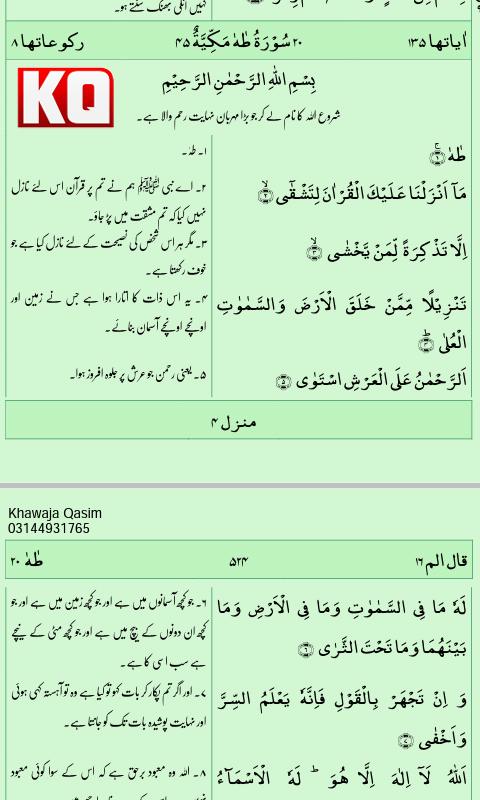 نہیں انکی بھنک سنتے ہو۔
اٰیاتھا ۱۳۵ ۲۰ سُوْرَۃُ طٰہٰ مَکِّیَّۃٌ ۴۵ رکوعاتھا ۸
KQ
بِسْمِ اللّٰهِ الرَّحْمٰنِ الرَّحِیْمِ
شروع اللہ کا نام لے کر جو بڑا مہربان نہایت رحم والا ہے۔
طٰهٰ ۚ﴿۱﴾
۱۔ طٰہٰ۔
مَاۤ اَنْزَلْنَا عَلَیْكَ الْقُرْاٰنَ لِتَشْقٰۤی ۙ﴿۲﴾
۲۔ اے نبی ﷺ ہم نے تم پر قرآن اس لئے نازل
نہیں کیا کہ تم مشقت میں پڑ جاؤ۔
اِلَّا تَذْكِرَةً لِّمَنْ یَّخْشٰی ۙ﴿۳﴾
۳۔ مگر ہر اس شخص کی نصیحت کے لئے نازل کیا ہے جو
خوف رکھتا ہے۔
تَنْزِیْلًا مِّمَّنْ خَلَقَ الْاَرْضَ وَالسَّمٰوٰتِ
الْعُلٰی ؕ﴿۴﴾
۴۔ یہ اس ذات کا اتارا ہوا ہے جس نے زمین اور
اونچے اونچے آسمان بنائے۔
اَلرَّحْمٰنُ عَلَی الْعَرْشِ اسْتَوٰی ﴿۵﴾
۵۔ یعنی رحمٰن جو عرش پر جلوہ افروز ہوا۔
منزل ۴
Khawaja Qasim
03144931765
قال الم ۱۶ ۵۲۴ طٰہٰ ۲۰
لَهٗ مَا فِی السَّمٰوٰتِ وَمَا فِی الْاَرْضِ وَمَا
بَیْنَهُمَا وَمَا تَحْتَ الثَّرٰی ﴿۶﴾
۶۔ جو کچھ آسمانوں میں ہے اور جو کچھ زمین میں ہے اور جو
کچھ ان دونوں کے بیچ میں ہے اور جو کچھ مٹی کے نیچے
ہے سب اسی کا ہے۔
وَ اِنْ تَجْهَرْ بِالْقَوْلِ فَاِنَّهٗ یَعْلَمُ السِّرَّ
وَاَخْفٰی ﴿۷﴾
۷۔ اور اگر تم پکار کر بات کہو تو کیا ہے وہ تو آہستہ کہی ہوئی
اور نہایت پوشیدہ بات تک کو جانتا ہے۔
اَللّٰهُ لَاۤ اِلٰهَ اِلَّا هُوَ ؕ لَهُ الْاَسْمَآءُ
۸۔ اللہ وہ معبود برحق ہے کہ اس کے سوا کوئی معبود